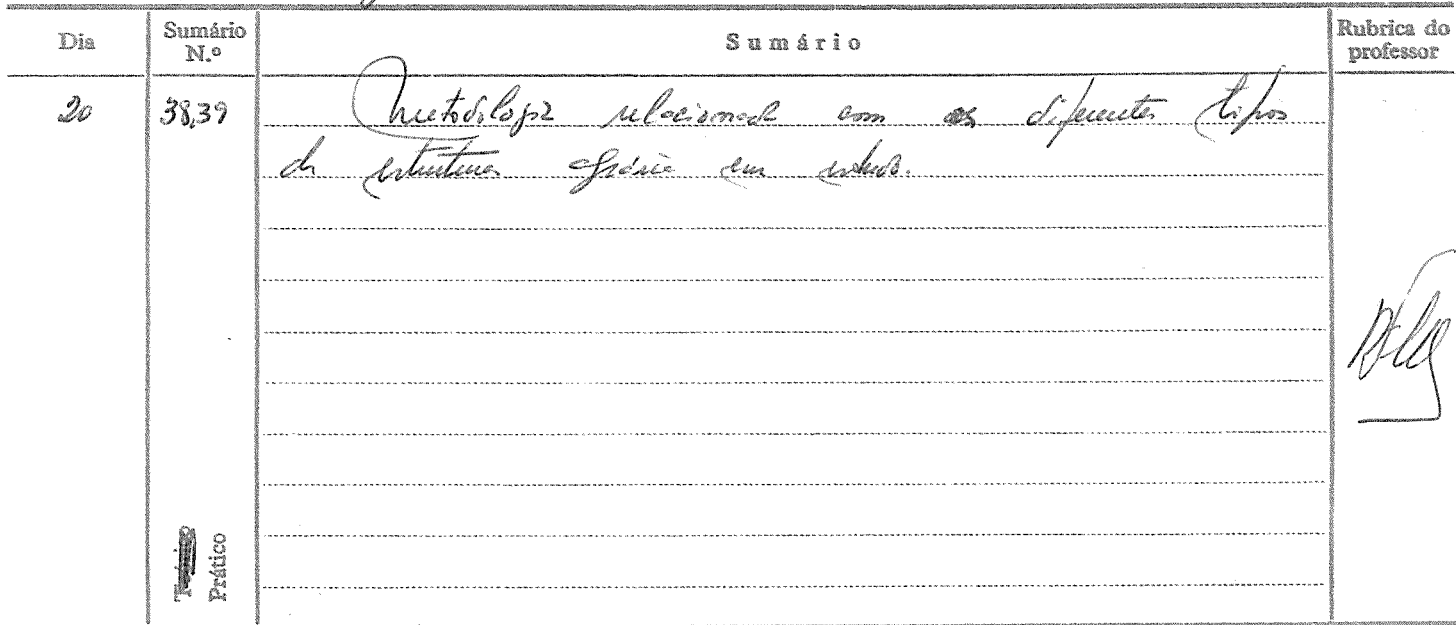 Dia
Sumário
N.º
Sumário
Rubrica do
professor
20
38,39
Metodologia relacionada com os diferentes tipos
de estruturas agrária em estudo.
Prático